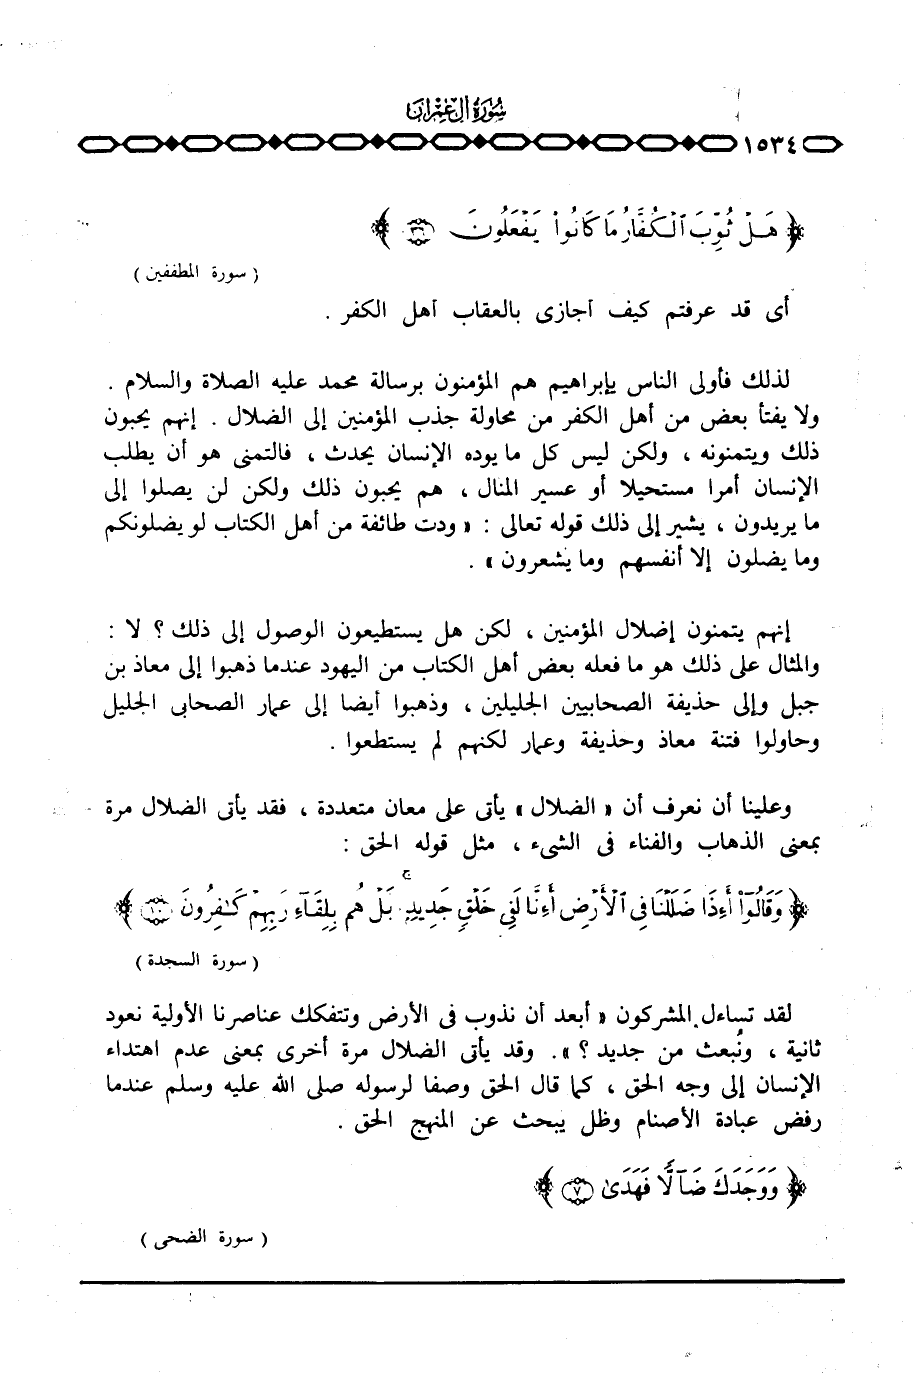 سُورَةُ آلِ عِمْرَان
١٥٣٤
﴿ هَلْ ثُوِّبَ ٱلْكُفَّارُ مَا كَانُوا۟ يَفْعَلُونَ ٣٦ ﴾
( سورة المطففين )
أى قد عرفتم كيف أجازى بالعقاب أهل الكفر .
لذلك فأولى الناس بإبراهيم هم المؤمنون برسالة محمد عليه الصلاة والسلام .
ولا يفتأ بعض من أهل الكفر من محاولة جذب المؤمنين إلى الضلال . إنهم يحبون
ذلك ويتمنونه ، ولكن ليس كل ما يوده الإنسان يحدث ، فالتمنى هو أن يطلب
الإنسان أمرا مستحيلا أو عسير المنال ، هم يحبون ذلك ولكن لن يصلوا إلى
ما يريدون ، يشير إلى ذلك قوله تعالى : « ودت طائفة من أهل الكتاب لو يضلونكم
وما يضلون إلا أنفسهم وما يشعرون » .
إنهم يتمنون إضلال المؤمنين ، لكن هل يستطيعون الوصول إلى ذلك ؟ لا :
والمثال على ذلك هو ما فعله بعض أهل الكتاب من اليهود عندما ذهبوا إلى معاذ بن
جبل وإلى حذيفة الصحابيين الجليلين ، وذهبوا أيضا إلى عمار الصحابى الجليل
وحاولوا فتنة معاذ وحذيفة وعمار لكنهم لم يستطعوا .
وعلينا أن نعرف أن « الضلال » يأتى على معان متعددة ، فقد يأتى الضلال مرة
بمعنى الذهاب والفناء فى الشىء ، مثل قوله الحق :
﴿ وَقَالُوٓا۟ أَءِذَا ضَلَلْنَا فِى ٱلْأَرْضِ أَءِنَّا لَفِى خَلْقٍ جَدِيدٍۭ ۚ بَلْ هُم بِلِقَآءِ رَبِّهِمْ كَـٰفِرُونَ ١٠ ﴾
( سورة السجدة )
لقد تساءل المشركون « أبعد أن نذوب فى الأرض وتتفكك عناصرنا الأولية نعود
ثانية ، ونُبعث من جديد ؟ » . وقد يأتى الضلال مرة أخرى بمعنى عدم اهتداء
الإنسان إلى وجه الحق ، كما قال الحق وصفا لرسوله صلى الله عليه وسلم عندما
رفض عبادة الأصنام وظل يبحث عن المنهج الحق .
﴿ وَوَجَدَكَ ضَآلًّا فَهَدَىٰ ٧ ﴾
( سورة الضحى )